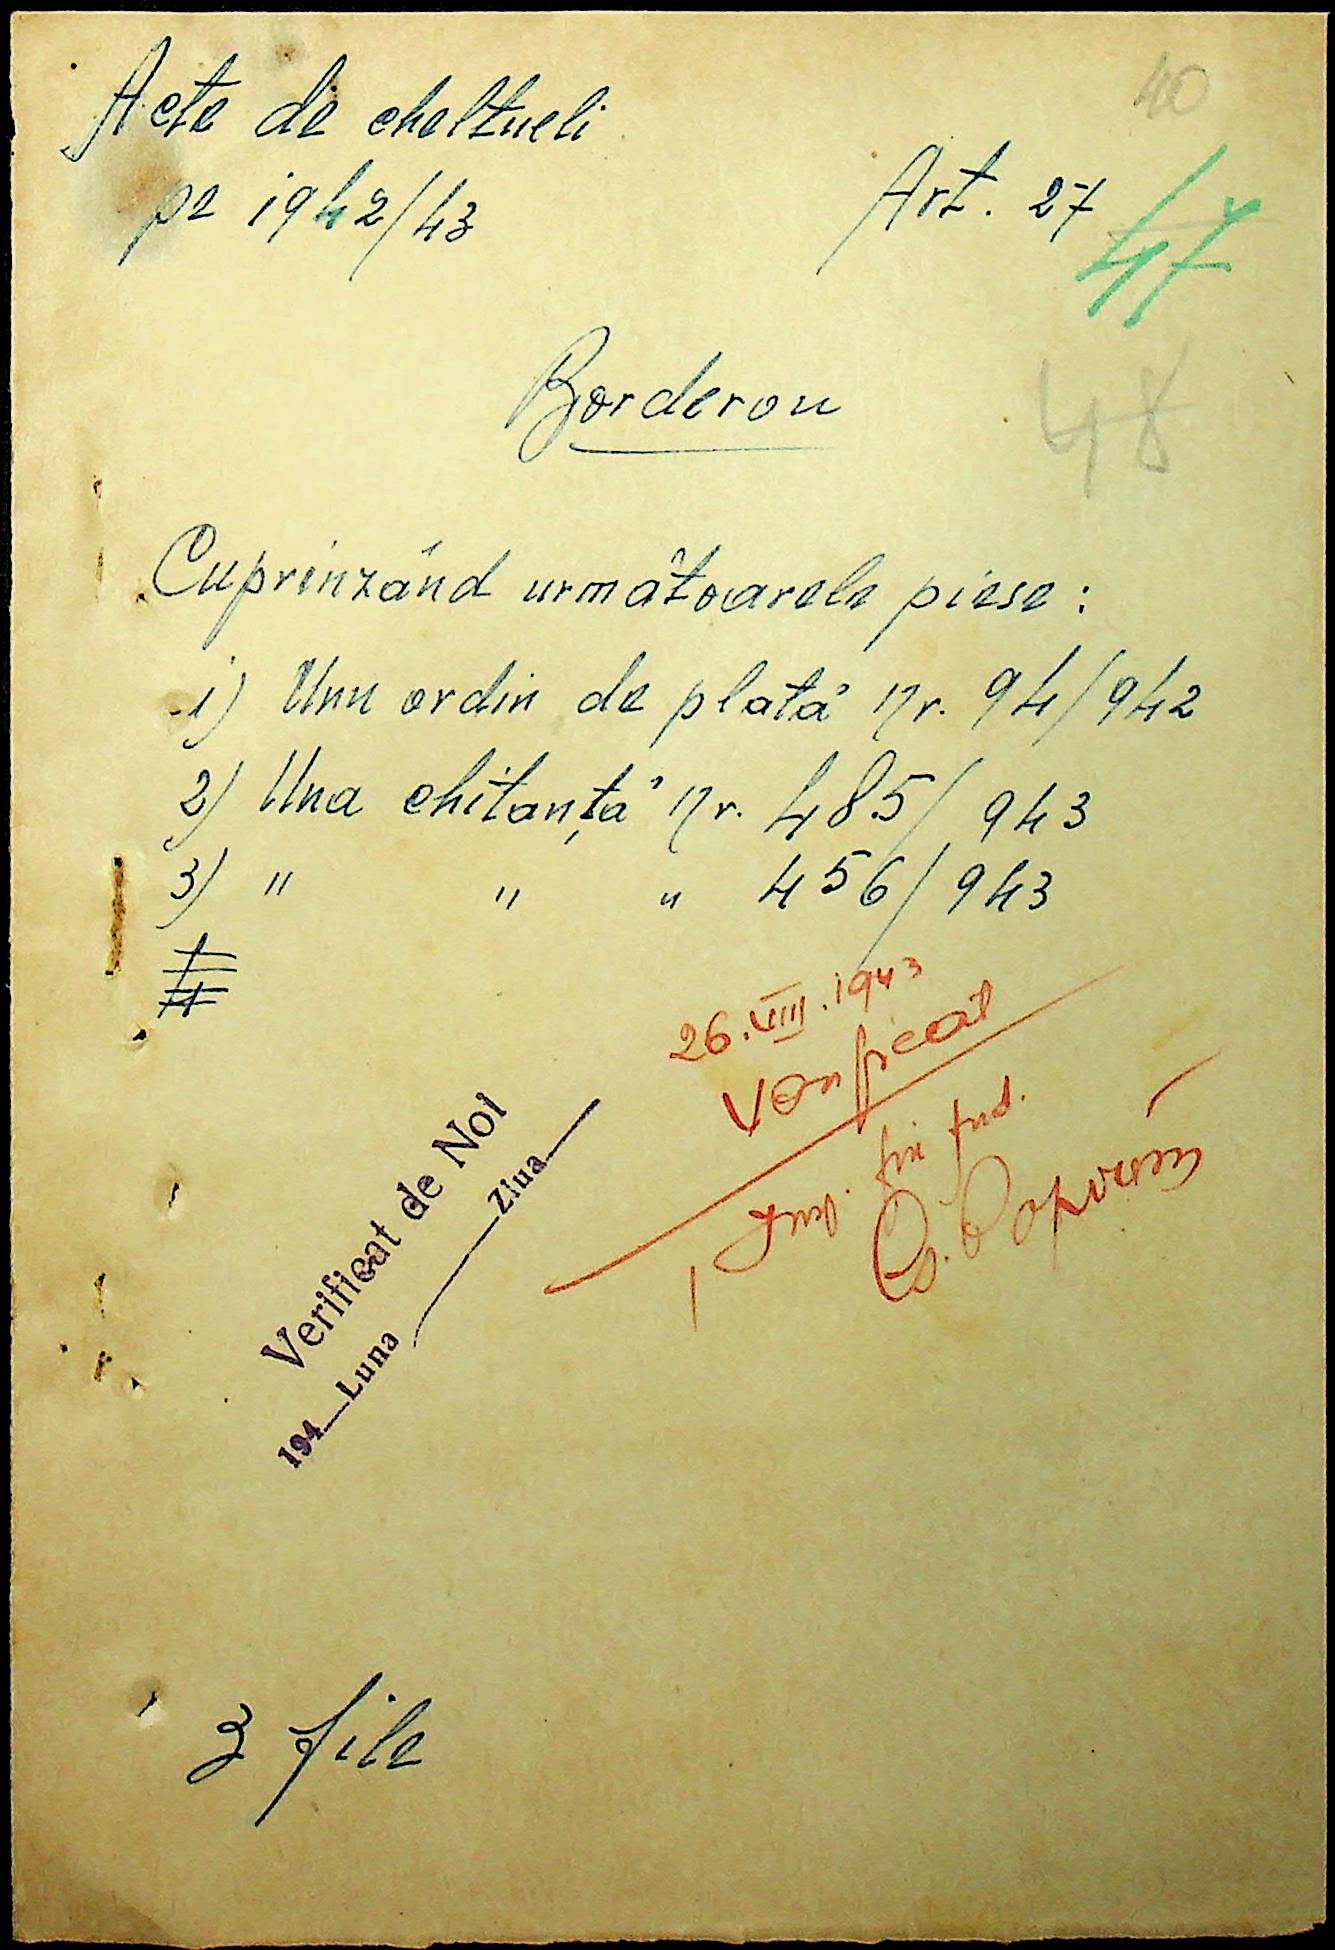 40
Acte de cheltueli
pe 1942/43
Art. 27
47
Borderou
48
Cuprinzând următoarele piese:
1) Unu ordin de plată Nr. 94/942
2) Una chitanță Nr. 485/943
3) " " " 456/943
26.VIII.1943
Verificat
fin jud.
Verificat de Noi
194 Luna Ziua
3 file